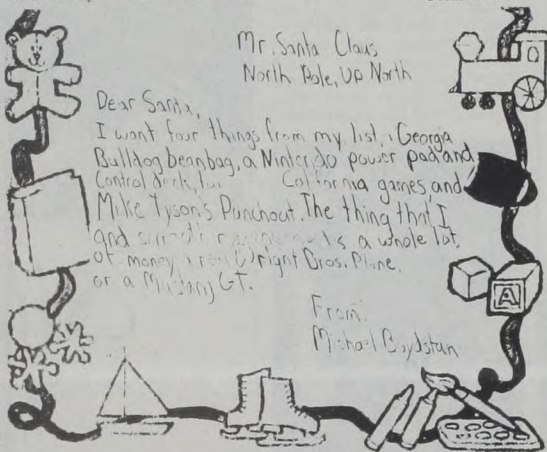 Mr. Santa Claus
North Pole, Up North
Dear Santa,
I want four things from my list, a Georgia
Bulldog beanbag, a Nintendo power pad and
Control deck, California games, and
Mike Tyson's Punchout. The thing that I
and is a whole lot
of money, a real Wright Bros. Plane,
or a Mustang GT.
From:
Michael Boydstun
A